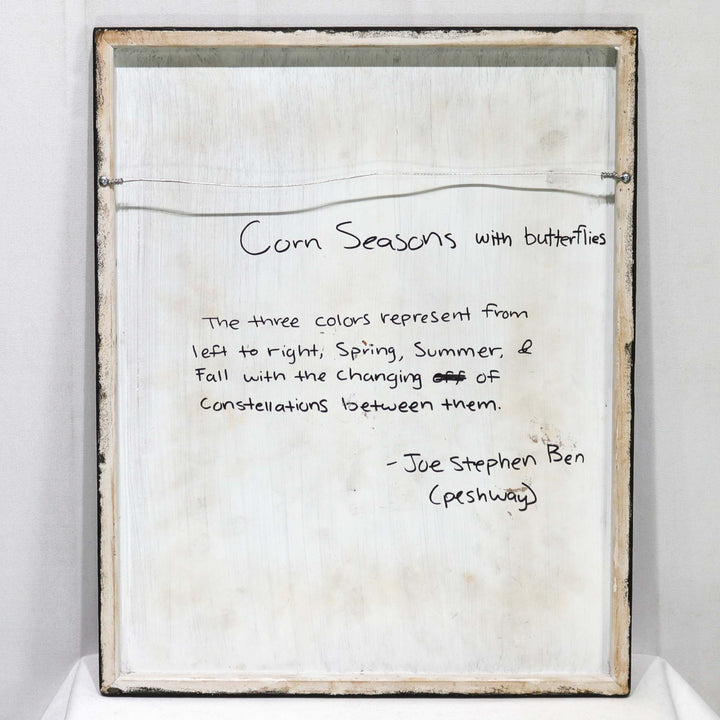 Corn Seasons with butterflies
The three colors represent from
left to right, Spring, Summer, &
Fall with the changing of
Constellations between them.
- Joe Stephen Ben
(peshway)